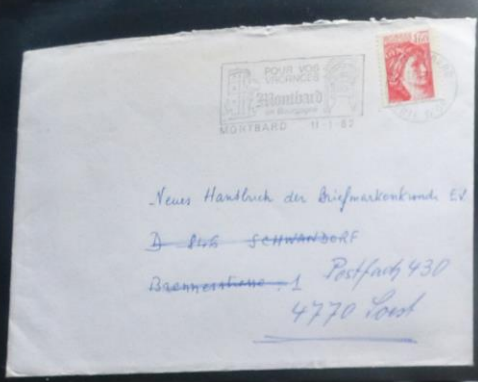 POUR VOS
VACANCES
Montbard
en Bourgogne
MONTBARD 11-1-82
Neues Handbuch der Briefmarkenkunde E.V.
D 846 SCHWANDORF
1 Postfach 430
4770 Soest